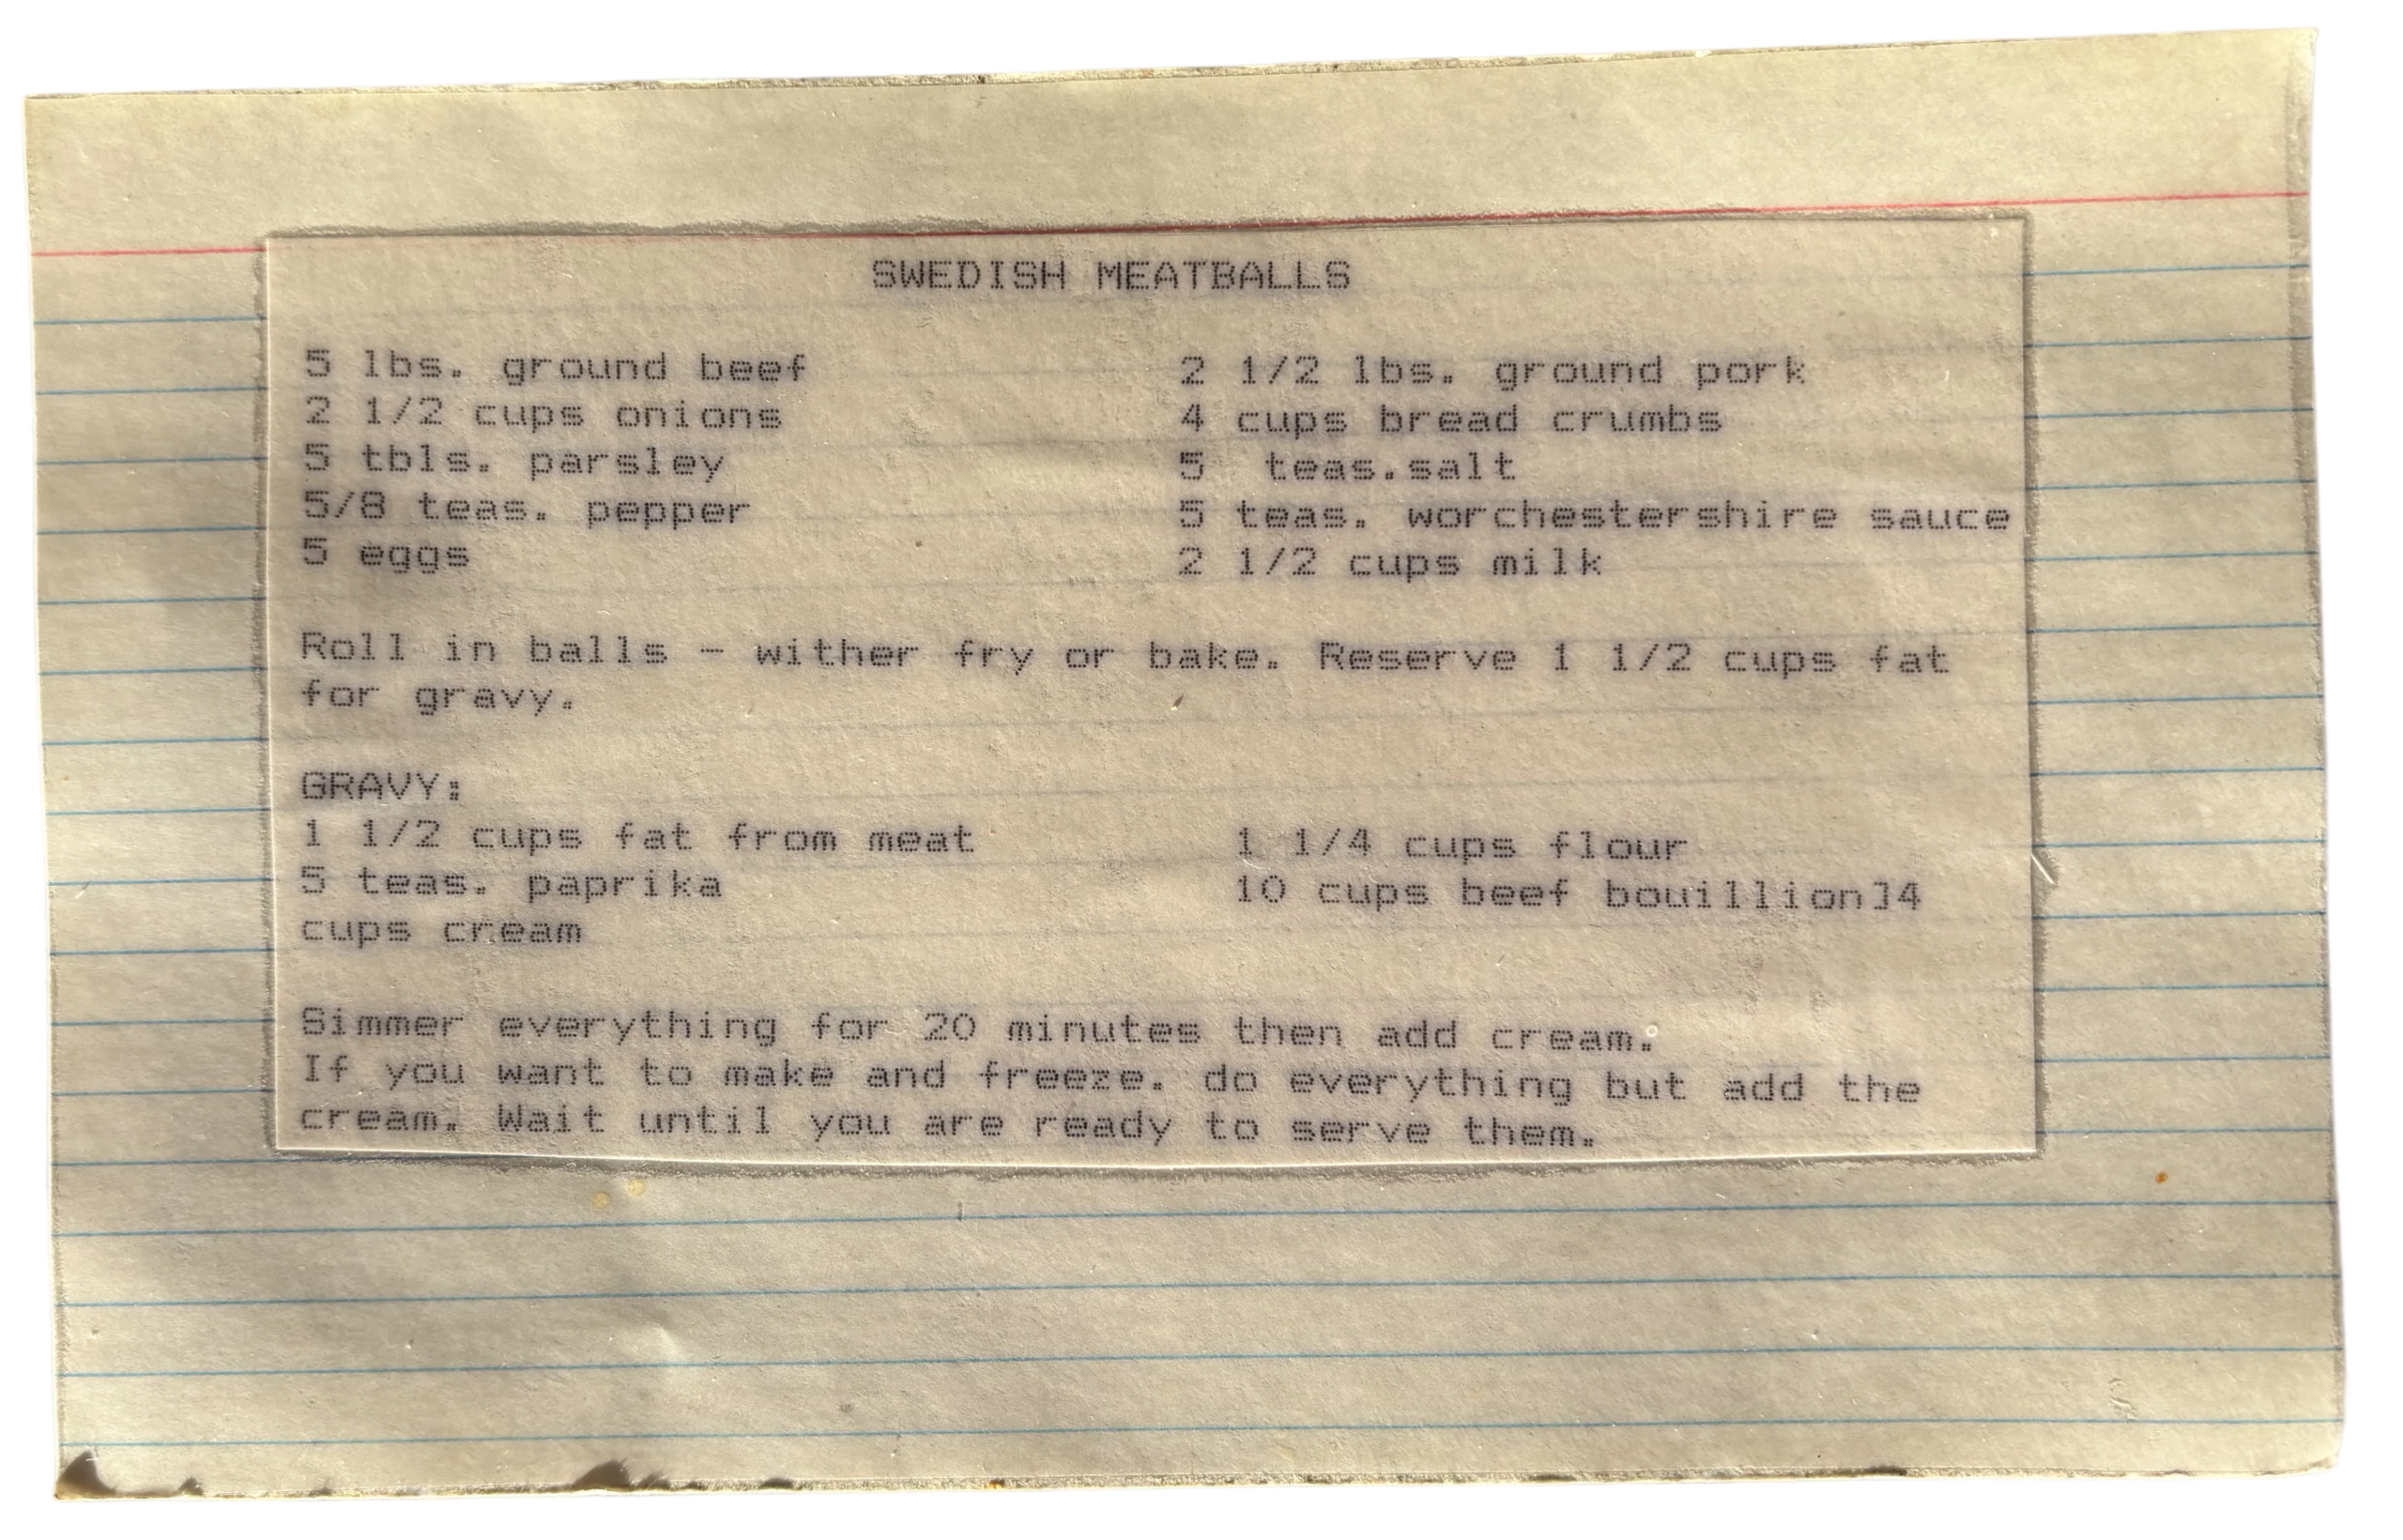 SWEDISH MEATBALLS
5 lbs. ground beef 2 1/2 lbs. ground pork
2 1/2 cups onions 4 cups bread crumbs
5 tbls. parsley 5 teas.salt
5/8 teas. pepper 5 teas. worchestershire sauce
5 eggs 2 1/2 cups milk
Roll in balls - wither fry or bake. Reserve 1 1/2 cups fat
for gravy.
GRAVY:
1 1/2 cups fat from meat 1 1/4 cups flour
5 teas. paprika 10 cups beef bouillion]4
cups cream
Simmer everything for 20 minutes then add cream.
If you want to make and freeze. do everything but add the
cream. Wait until you are ready to serve them.